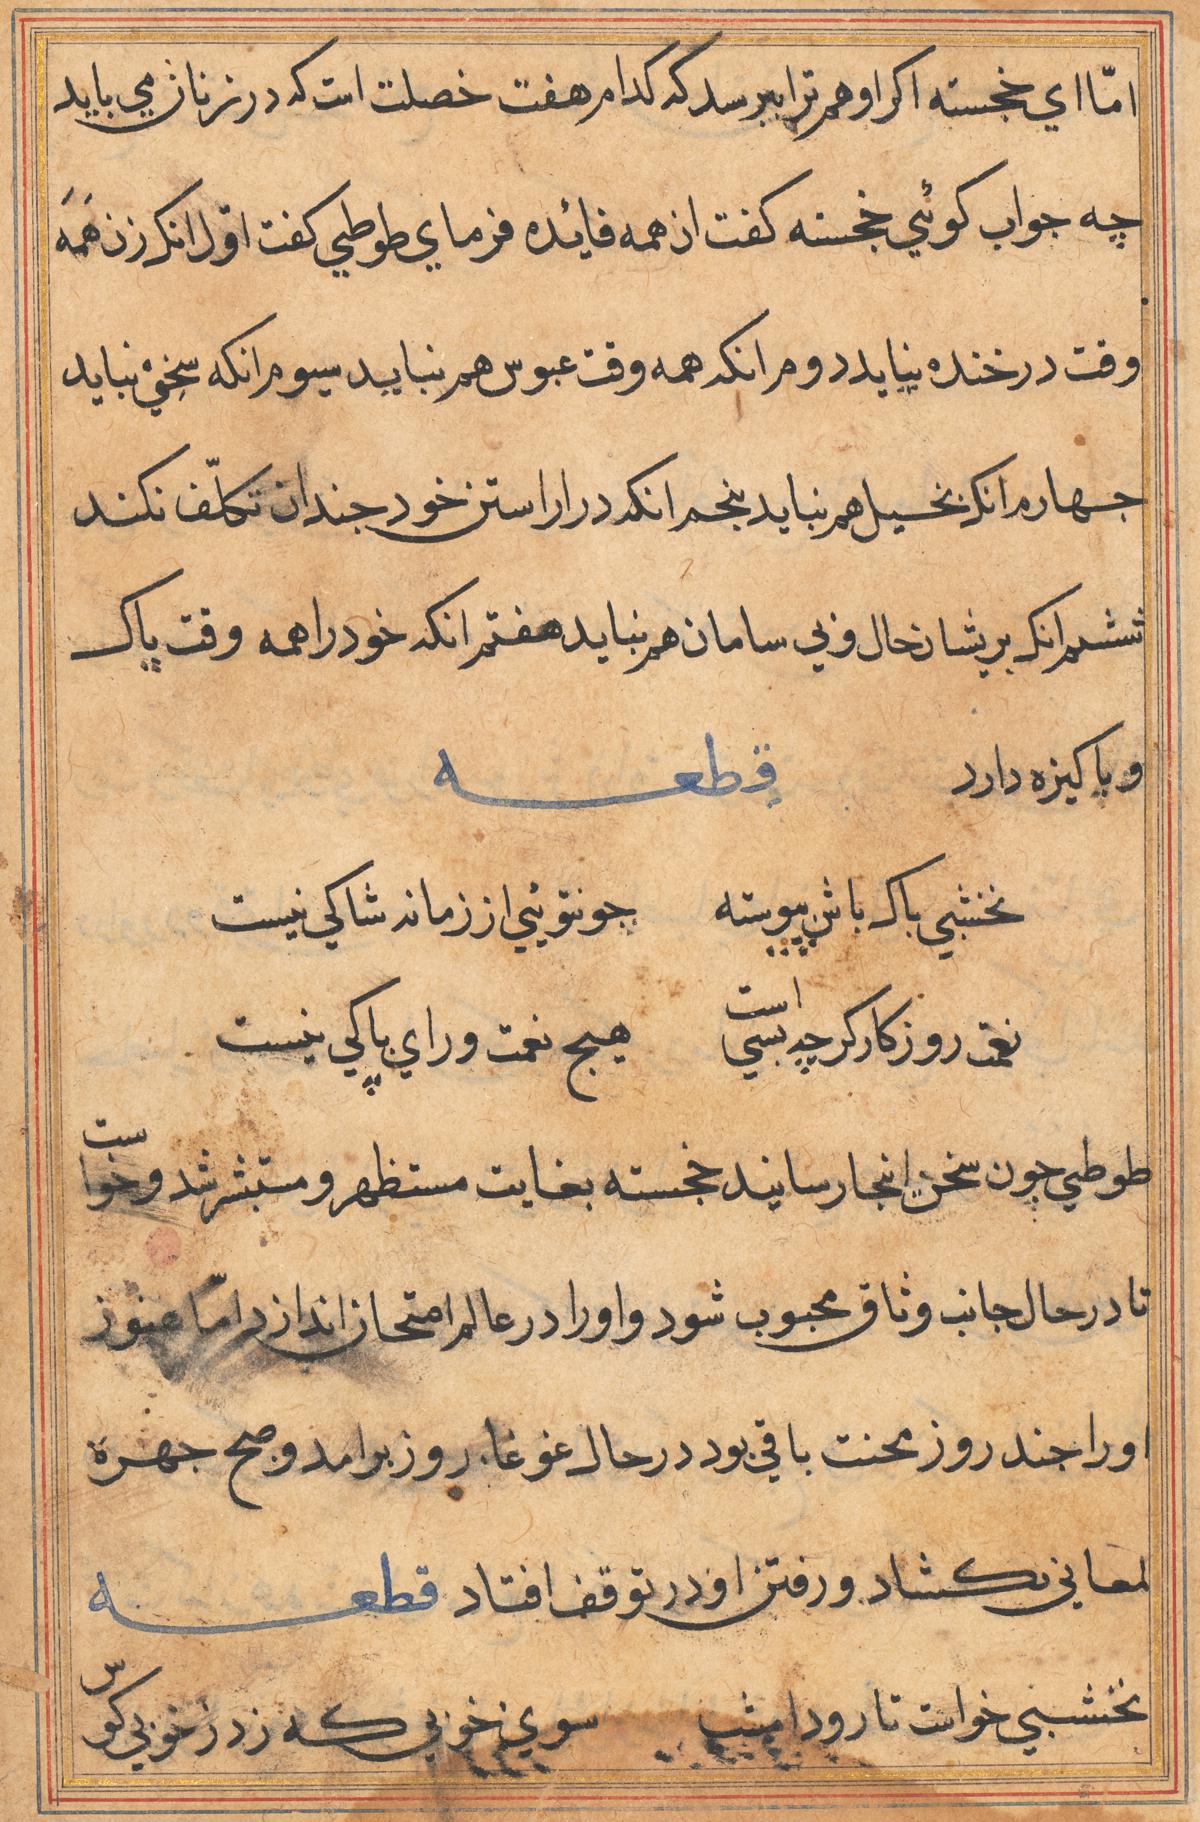 امّا اي خجسته اكر او هم ترا ببرسد كه كدام هفت خصلت است كه در زنان مي بايد
چه جواب كوئي خجسته كفت از همه فايده فرماي طوطي كفت اوّل انكه زن همه
وقت در خنده نبايد دوم انكه همه وقت عبوس هم نبايد سيوم انكه سخي نبايد
جهارم انكه بخيل هم نبايد بنجم انكه در اراستن خود جندان تكلّف نكند
ششم انكه بريشان حال و بي سامان هم نبايد هفتم انكه خود را همه وقت پاك
و باكيزه دارد قطعه
نخشبي باك باش پيوسته جو نتوئي از زمانه شاكي نيست
نعمت روزكار كر چه بسي است هيج نعمت وراي پاكي نيست
طوطي چون سخن اينجا رسانيد خجسته بغايت مستظهر و مستبشر شد و خواست
تا در حال جانب وثاق محبوب شود و او را در عالم امتحان اندازد امّا هنوز
او را جند روز محنت باقي بود در حال غوغاء روز برامد و صبح جهره
لمعاني بكشاد و رفتن او در توقف افتاد قطعه
نخشبي خواست تا رود امشب سوي خوبي كه زد ز خوبي كوس